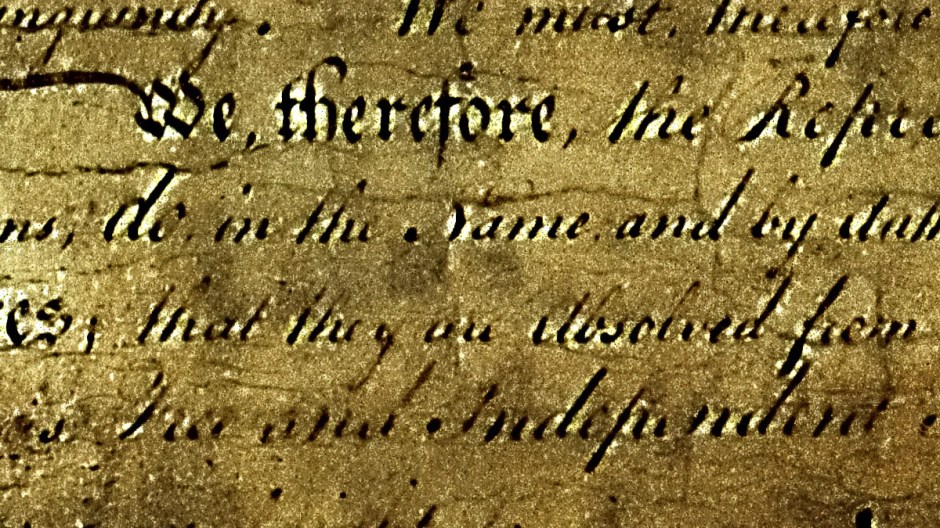 We must, therefore
We, therefore, the Repre
ns, do, in the Name, and by Auth
es; that they are Absolved from
is Free and Independent